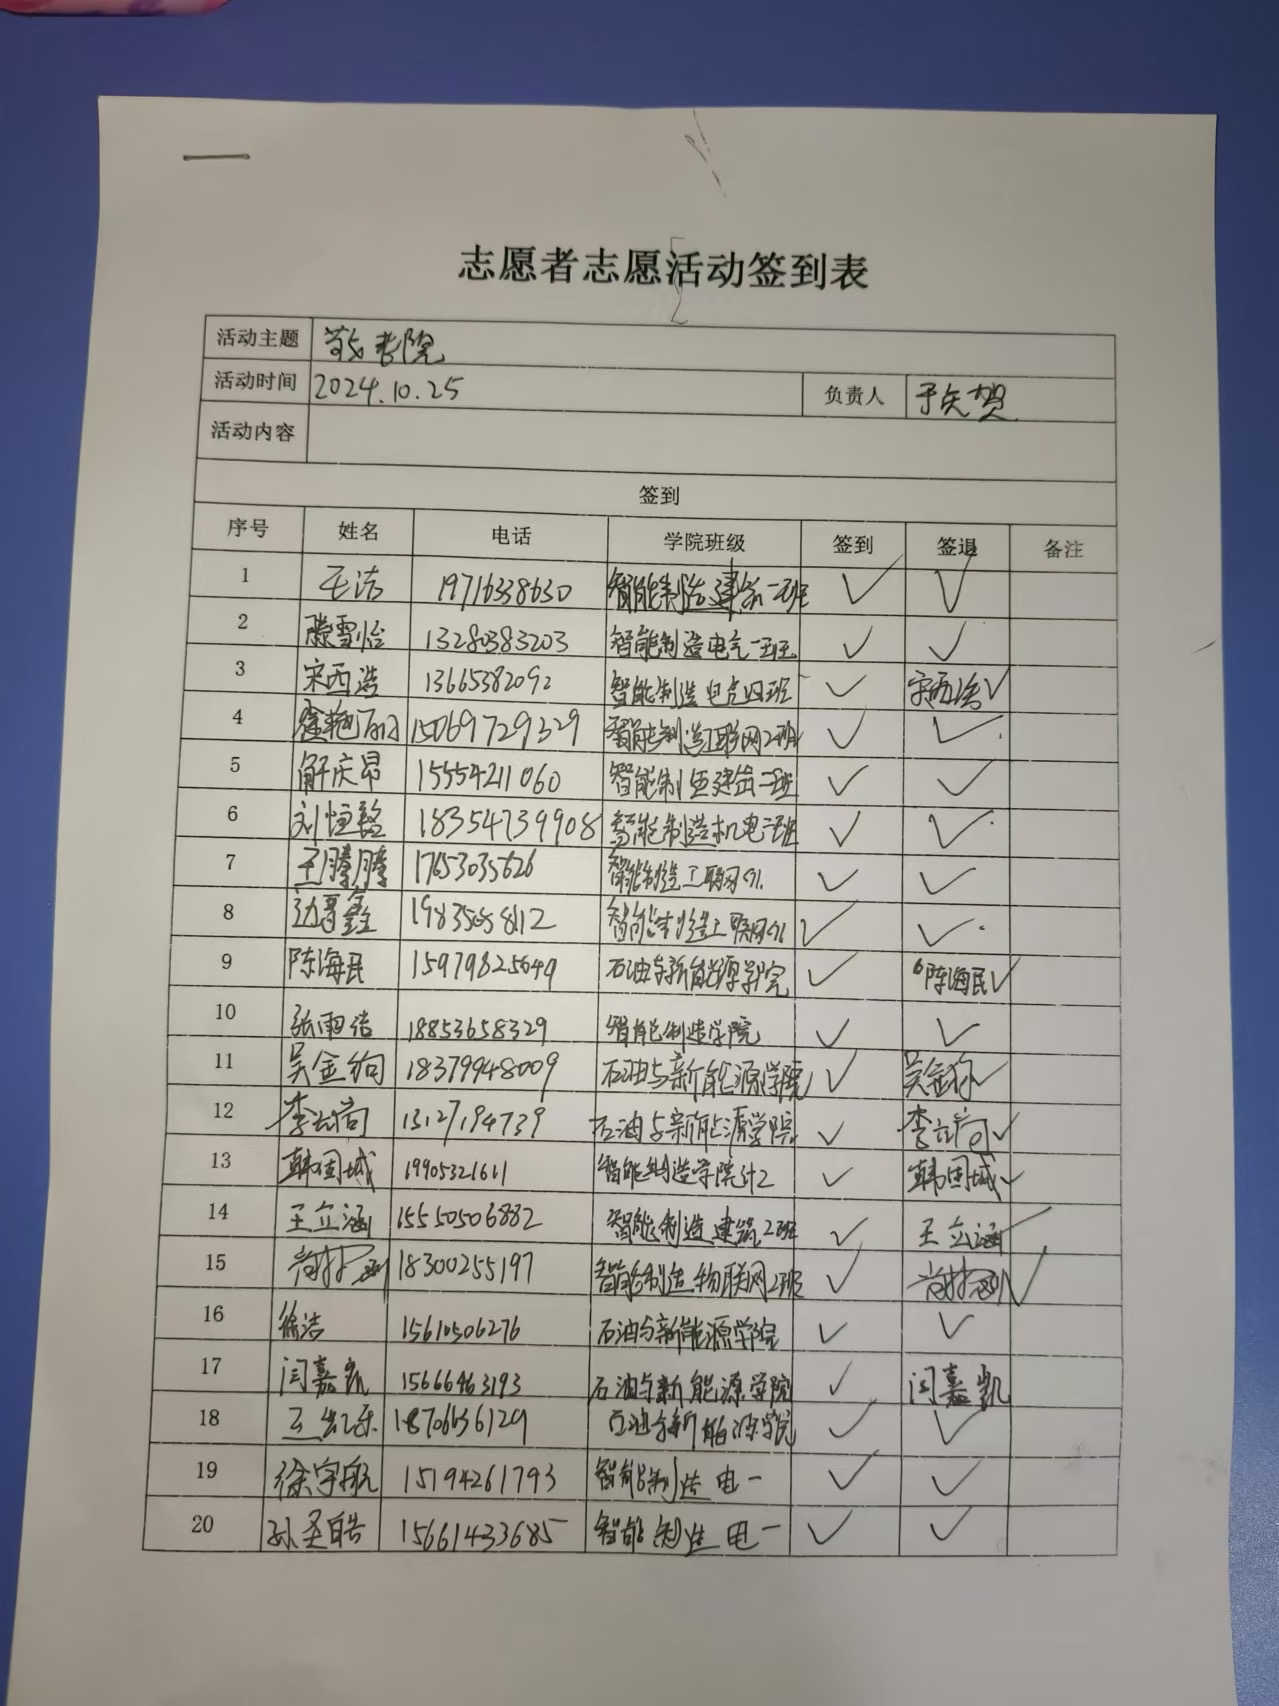 志愿者志愿活动签到表
活动主题 敬老院
活动时间 2024.10.25 负责人 于矢贺
活动内容
签到
序号 姓名 电话 学院班级 签到 签退 备注
1 王洁 19716338630 智能制造建筑二班 ✓ ✓
2 滕雪怡 13280383203 智能制造电气一班 ✓ ✓
3 宋西浩 13665382092 智能制造电气四班 ✓ 宋西浩✓
4 15069729329 智能制造 联网2班 ✓ ✓
5 解庆昂 15554211060 智能制造建筑二班 ✓ ✓
6 刘恒懿 18354739908 智能制造机电二班 ✓ ✓
7 王腾腾 17653035626 智能制造工联网 ✓ ✓
8 鑫 智能制造工联网 ✓ ✓
9 陈海民 15979825649 石油与新能源学院 ✓ 陈海民✓
10 张雨洁 18853658329 智能制造学院 ✓ ✓
11 吴金狗 18379948009 石油与新能源学院 ✓ ✓
12 李 尚 13127194739 石油与新能源学院 ✓ 李 尚✓
13 韩国城 19905321611 智能制造学院计2 ✓ 韩国城✓
14 王立涵 15550506882 智能制造建筑2班 ✓ 王立涵✓
15 18300255197 智能制造物联网2班 ✓ ✓
16 徐洁 15610506276 石油与新能源学院 ✓ ✓
17 闫嘉凯 15666463193 石油与新能源学院 ✓ 闫嘉凯
18 王 乐 18706636129 石油与新能源学院 ✓ ✓
19 徐宇航 15194261793 智能制造电一 ✓ ✓
20 孙圣皓 15661433685 智能制造电一 ✓ ✓